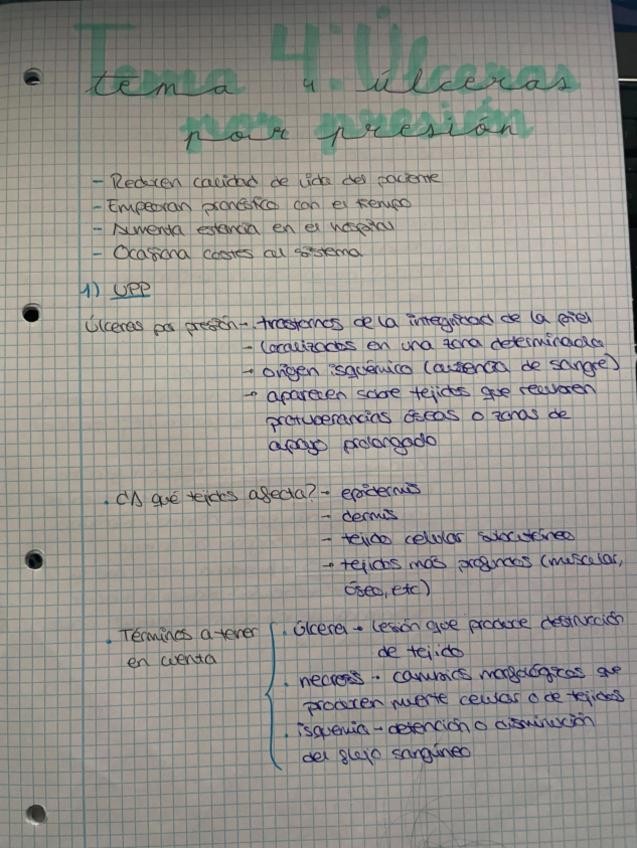 Tema 4: Úlceras
por presión
- Reducen calidad de vida del paciente
- Empeoran pronóstico con el tiempo
- Aumenta estancia en el hospital
- Ocasiona costes al sistema
1) UPP
Úlceras por presión - trastornos de la integridad de la piel
- localizados en una zona determinada
→ origen isquémico (ausencia de sangre)
→ aparecen sobre tejidos que recubren
protuberancias óseas o zonas de
apoyo prolongado
· ¿A qué tejidos afecta? - epidermis
- dermis
- tejido celular subcutáneo
→ tejidos más profundos (muscular,
óseo, etc)
· Términos a tener
en cuenta
· Úlcera → lesión que produce destrucción
de tejido
· necrosis - cambios morfológicos que
producen muerte celular o de tejidos
· isquemia - detención o disminución
del flujo sanguíneo